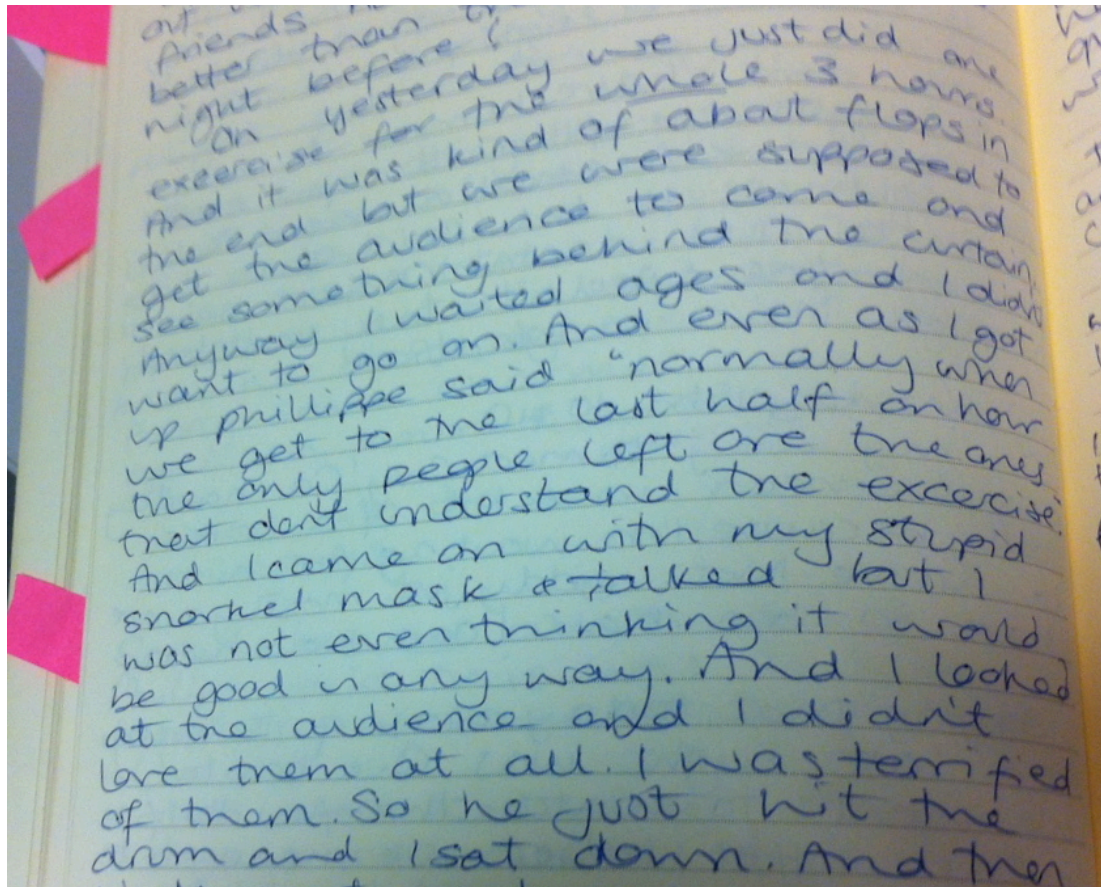 out
friends
better than
night before!
On yesterday we just did one
excercise for the whole 3 hours.
And it was kind of about flops in
the end but we were supposed to
get the audience to come and
see something behind the curtain.
Anyway I waited ages and I didn't
want to go on. And even as I got
up phillippe said "normally when
we get to the last half an hour
the only people left are the ones
that don't understand the excercise."
And I came on with my stupid
snorkel mask & talked but I
was not even thinking it would
be good in any way. And I looked
at the audience and I didn't
love them at all. I was terrified
of them. So he just hit the
drum and I sat down. And then